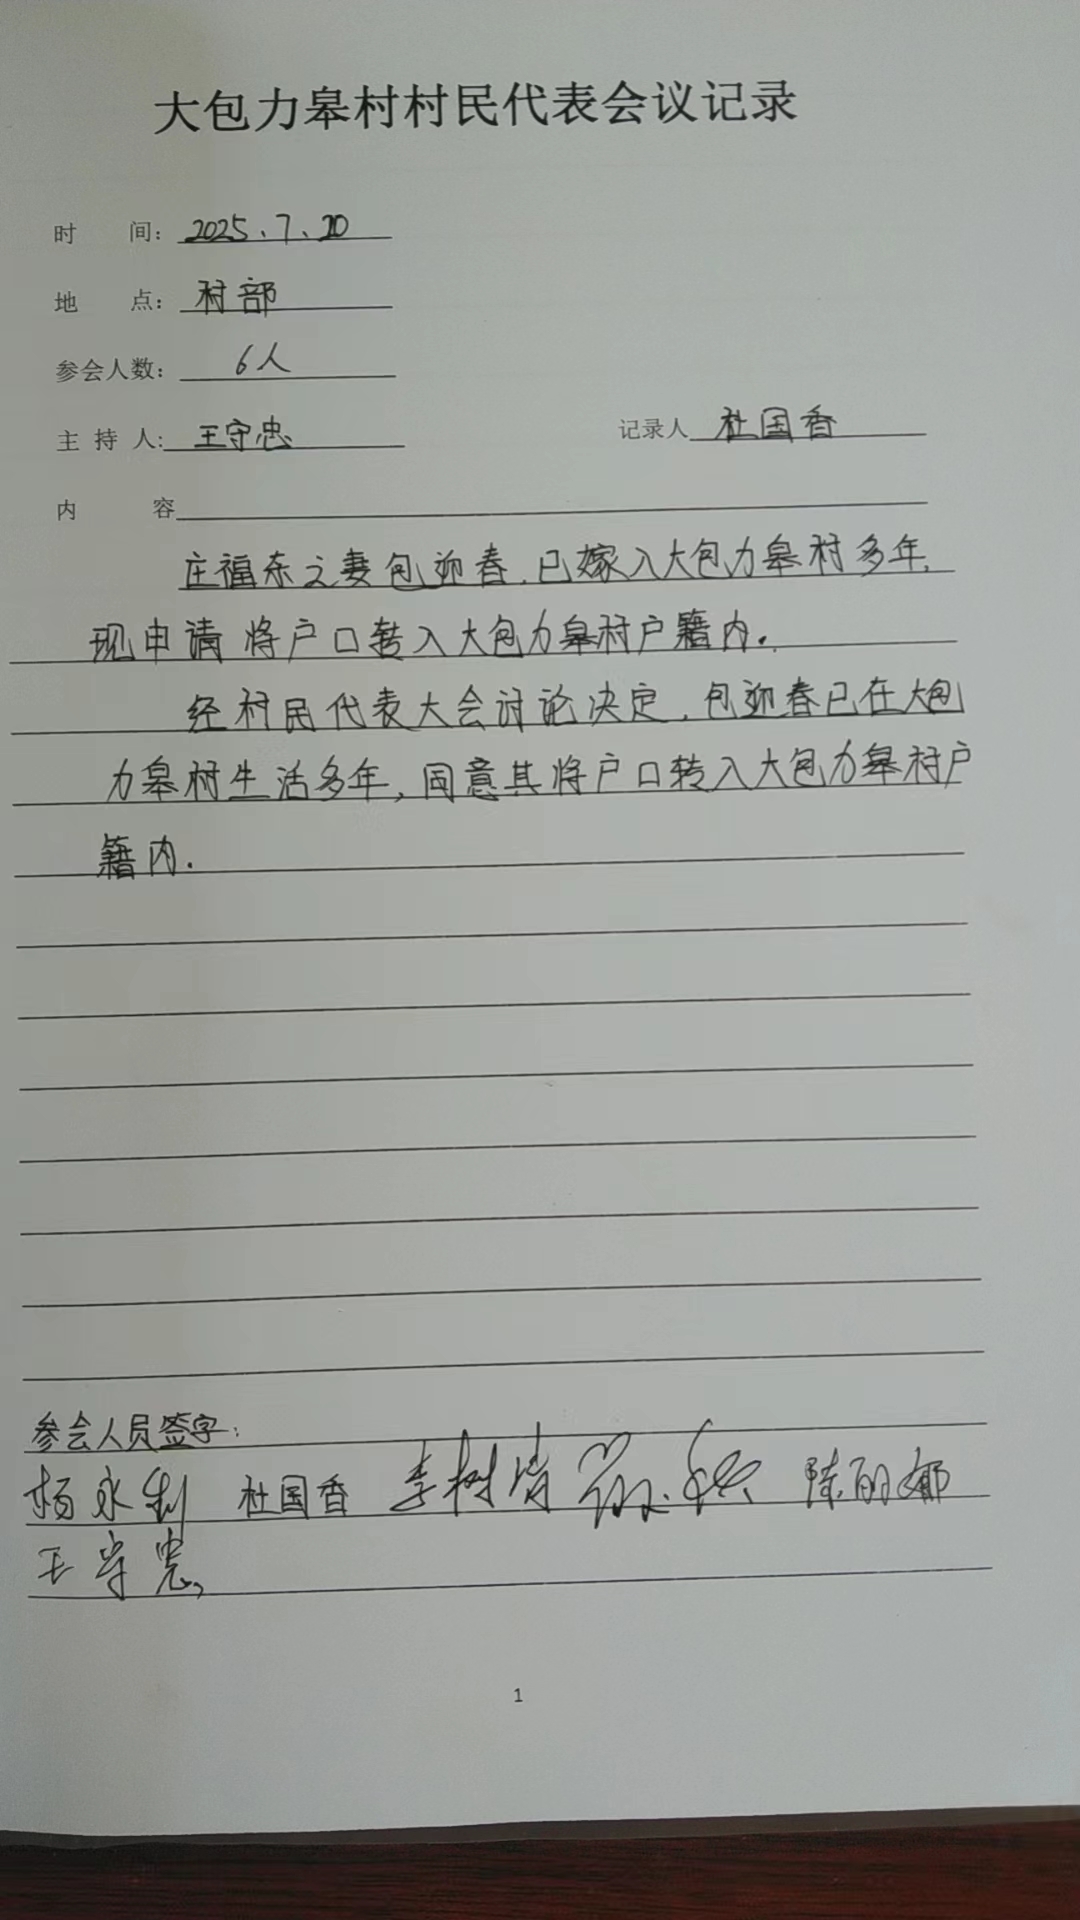 大包力皋村村民代表会议记录
时 间：2025、7、20
地 点：村部
参会人数：6人
主 持 人:王守忠 记录人 杜国香
内 容
庄福东之妻包迎春，已嫁入大包力皋村多年，
现申请将户口转入大包力皋村户籍内。
经村民代表大会讨论决定，包迎春已在大包
力皋村生活多年，同意其将户口转入大包力皋村户
籍内。
参会人员签字：
杨永利 杜国香 李树 陈丽娜
王守忠
1